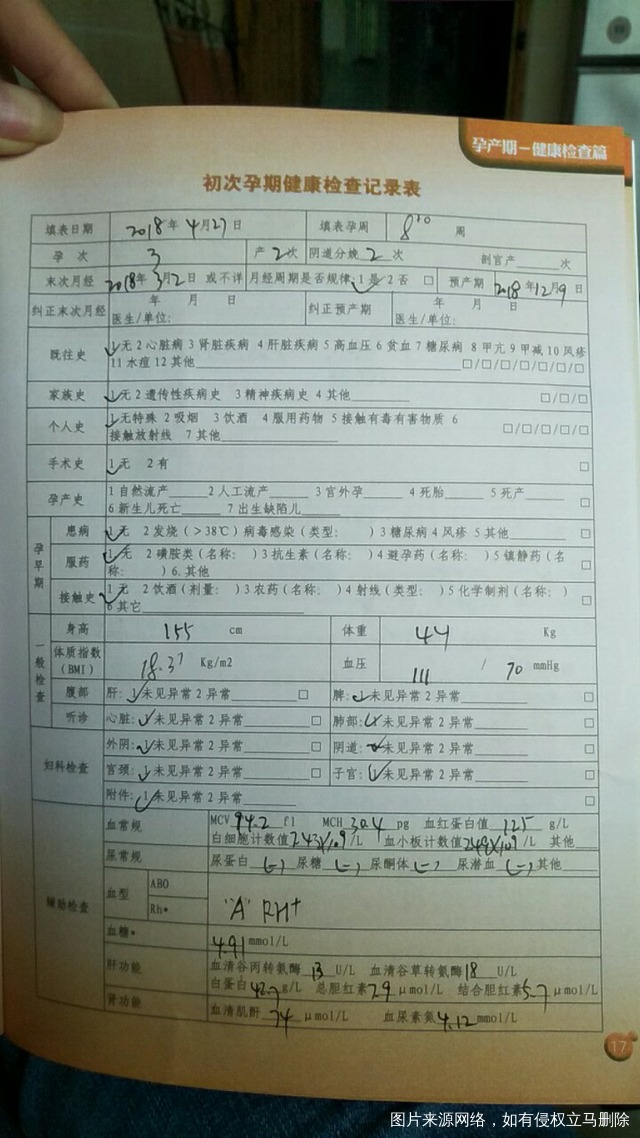 孕产期-健康检查篇
初次孕期健康检查记录表
填表日期 2018年 4月27日 填表孕周 8+0 周
孕 次 3 产 2次 阴道分娩 2 次 剖宫产 次
末次月经 2018年3月2日 或不详 月经周期是否规律:1是 2否 □ 预产期 2018年12月9日
纠正末次月经 年 月 日 医生/单位: 纠正预产期 年 月 日 医生/单位:
既往史 1无 2心脏病 3肾脏疾病 4肝脏疾病 5高血压 6贫血 7糖尿病 8甲亢 9甲减 10风疹
11水痘 12其他 □/□/□/□/□/□/□
家族史 1无 2遗传性疾病史 3精神疾病史 4其他 □/□/□
个人史 1无特殊 2吸烟 3饮酒 4服用药物 5接触有毒有害物质 6
接触放射线 7其他 □/□/□/□/□
手术史 1无 2有 □
孕产史 1自然流产 2人工流产 3宫外孕 4死胎 5死产
6新生儿死亡 7出生缺陷儿 □
孕早期
患病 1无 2发烧(>38℃)病毒感染(类型: )3糖尿病 4风疹 5其他 □
服药 1无 2磺胺类(名称: )3抗生素(名称: )4避孕药(名称: )5镇静药(名
称: )6.其他
接触史 1无 2饮酒(剂量: )3农药(名称: )4射线(类型: )5化学制剂(名称: )
6其它
一般检查
身高 155 cm 体重 44 Kg
体质指数(BMI) 18.31 Kg/m2 血压 111 / 70 mmHg
腹部 肝:1未见异常 2异常 □ 脾:1未见异常 2异常 □
听诊 心脏:1未见异常 2异常 □ 肺部:1未见异常 2异常 □
妇科检查
外阴:1未见异常 2异常 □ 阴道:1未见异常 2异常 □
宫颈:1未见异常 2异常 □ 子宫:1未见异常 2异常 □
附件:1未见异常 2异常 □
辅助检查
血常规 MCV 94.2 fl MCH 30.4 pg 血红蛋白值 125 g/L
白细胞计数值 /L 血小板计数值 248×109 /L 其他
尿常规 尿蛋白 (-) 尿糖 (-) 尿酮体 (-) 尿潜血 (-) 其他
血型 ABO
Rh* "A" RH+
血糖* 4.91 mmol/L
肝功能 血清谷丙转氨酶 13 U/L 血清谷草转氨酶 18 U/L
白蛋白 42.7 g/L 总胆红素 7.9 μmol/L 结合胆红素 5.7 μmol/L
肾功能 血清肌酐 74 μmol/L 血尿素氮 4.12 mmol/L
17
图片来源网络,如有侵权立马删除